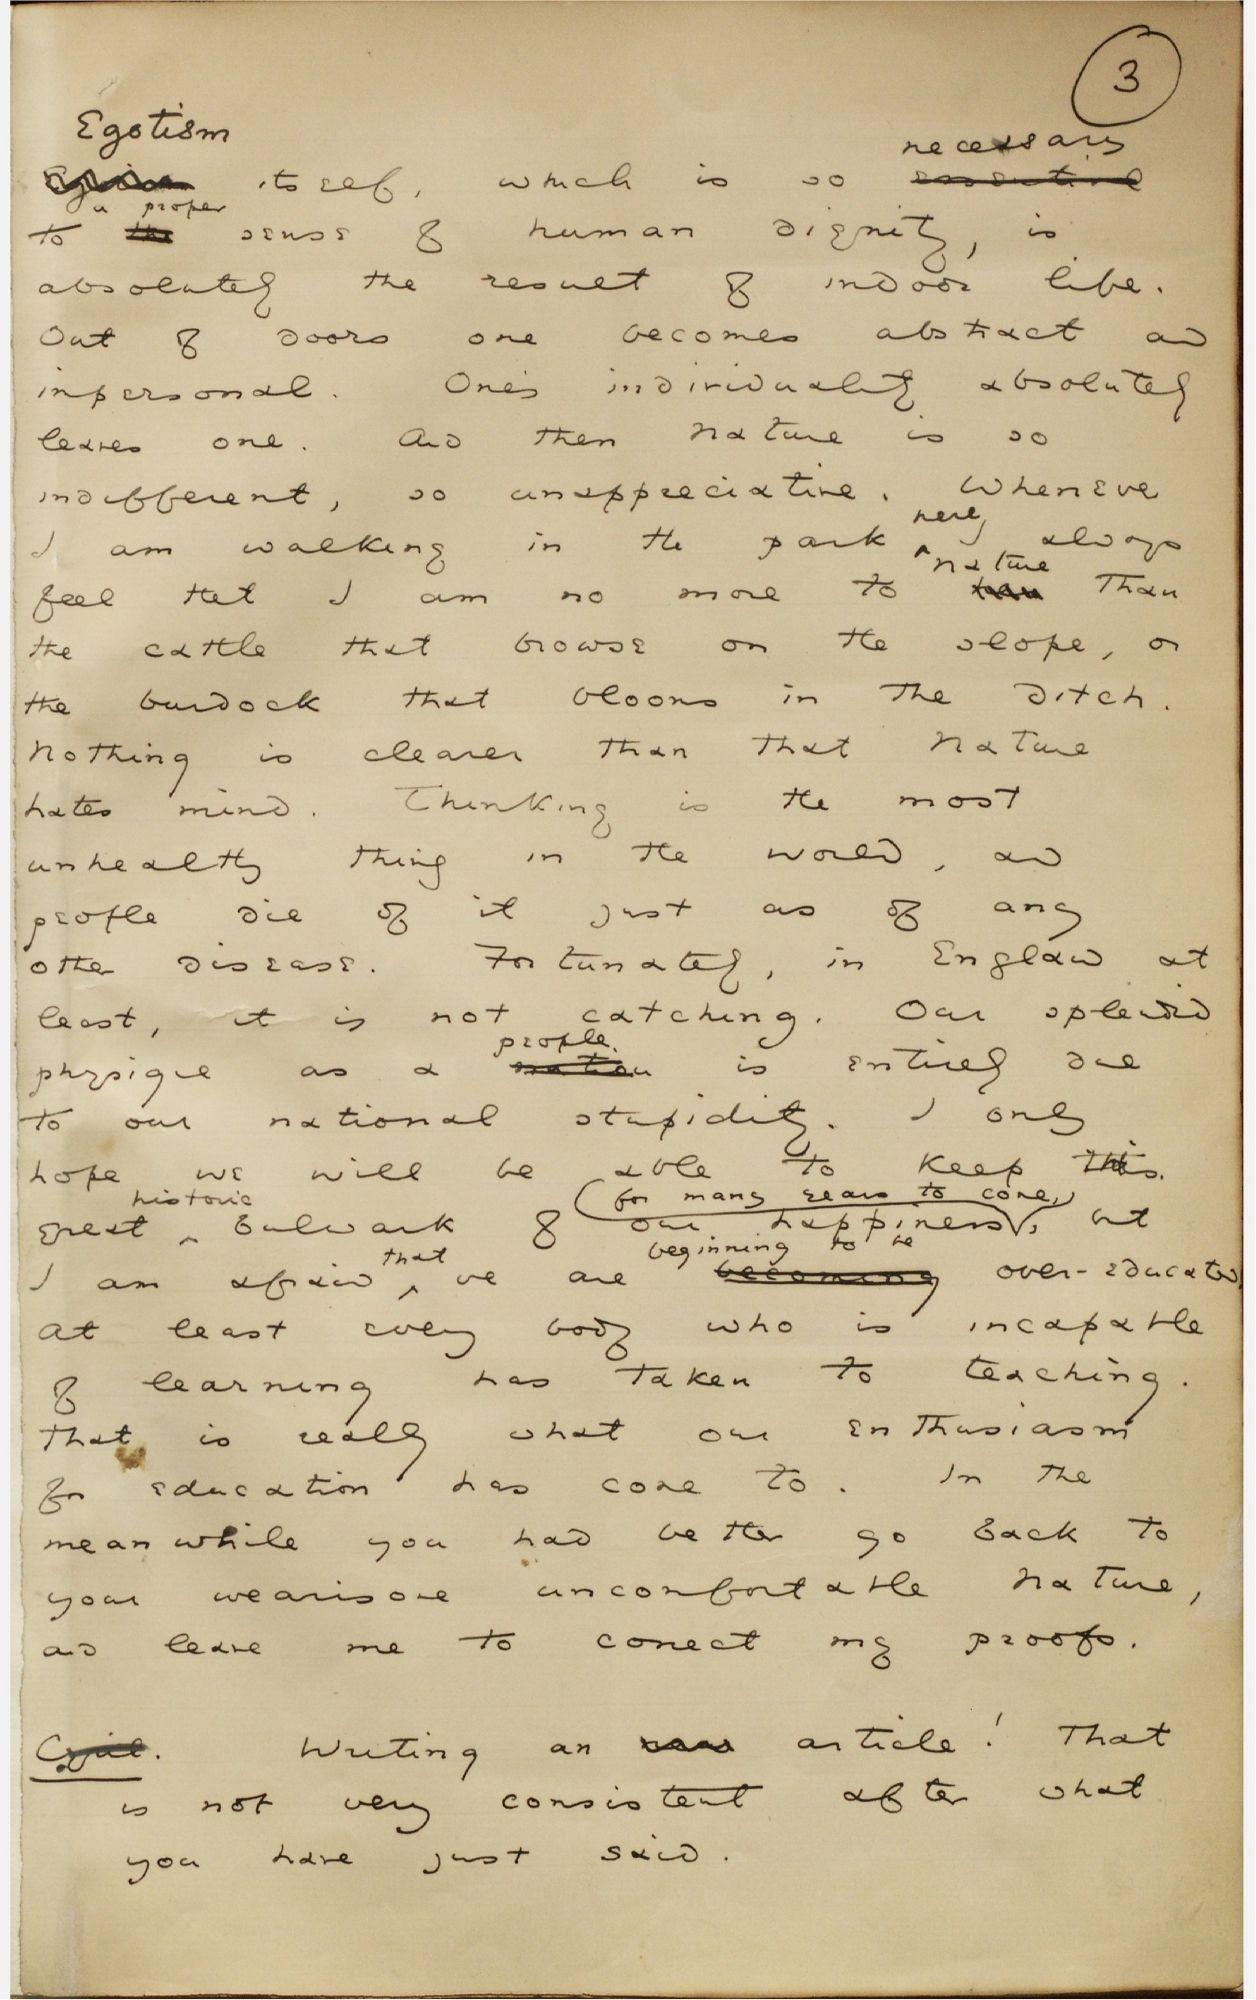 3
Egotism
necessary
itself, which is so essential
a proper
to the sense of human dignity, is
absolutely the result of indoor life.
Out of doors one becomes abstract and
impersonal. One's individuality absolutely
leaves one. And then Nature is so
indifferent, so unappreciative. Whenever
here,
I am walking in the park always
nature
feel that I am no more to than
the cattle that browse on the slope, or
the burdock that blooms in the ditch.
Nothing is clearer than that Nature
hates mind. Thinking is the most
unhealthy thing in the world, and
people die of it just as of any
other disease. Fortunately, in England at
least, it is not catching. Our splendid
people
physique as a nation is entirely due
to our national stupidity. I only
hope we will be able to keep this
historic (for many years to come,)
great ^ bulwark of our happiness, but
that beginning to be
I am afraid ^ we are becoming over-educated
at least every body who is incapable
of learning has taken to teaching.
That is really what our enthusiasm
for education has come to. In the
mean while you had better go back to
your wearisome uncomfortable Nature,
and leave me to correct my proofs.
Cyril. Writing an article! That
is not very consistent after what
you have just said.